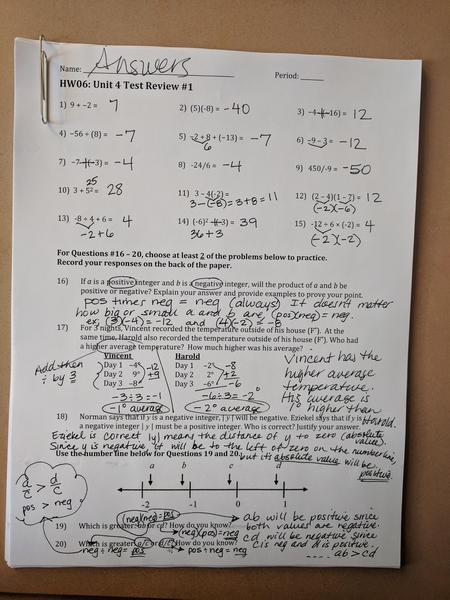 Name: Answers Period:
HW06: Unit 4 Test Review #1
1) 9 + -2 = 7 2) (5)(-8) = -40 3) -4 - (-16) = 12
4) -56 ÷ (8) = -7 5) -2 + 8 + (-13) = -7 6) -9 - 3 = -12
6
7) -7 - (-3) = -4 8) -24/6 = -4 9) 450/-9 = -50
25
10) 3 + 5² = 28 11) 3 - 4(-2) = 12) (2 - 4)(1 - 7) = 12
3 - (-8) = 3 + 8 = 11 (-2)(-6)
13) -8 ÷ 4 + 6 = 4 14) (-6)² - (-3) = 39 15) -12 ÷ 6 × (-2) = 4
-2 + 6 36 + 3 (-2)(-2)
For Questions #16 – 20, choose at least 2 of the problems below to practice.
Record your responses on the back of the paper.
16) If a is a positive integer and b is a negative integer, will the product of a and b be
positive or negative? Explain your answer and provide examples to prove your point.
pos times neg = neg (always) It doesn't matter
how big or small a and b are, (pos)(neg) = neg.
ex: (3)(-4) = -12 and (4)(-2) = -8
17) For 3 nights, Vincent recorded the temperature outside of his house (F°). At the
same time, Harold also recorded the temperature outside of his house (F°). Who had
a higher average temperature? How much higher was his average?
Vincent Harold
Day 1 -4° -12 Day 1 -2° -8
Day 2 9° +9 Day 2 2° +2
Day 3 -8° -3 Day 3 -6° -6
-3 ÷ 3 = -1 -6 ÷ 3 = -2°
-1° average -2° average
Add then
÷ by 3
Vincent has the
higher average
temperature.
His average is
1° higher than
Harold.
18) Norman says that if y is a negative integer, |y| will be negative. Ezekiel says that if y is
a negative integer |y| must be a positive integer. Who is correct? Justify your answer.
Ezekiel is correct |y| means the distance of y to zero (absolute
value).
Since y is negative, it will be to the left of zero on the number line,
but its absolute value will be
positive.
Use the number line below for Questions 19 and 20.
a b c d
-2 -1 0 1
d/c > d/c
pos > neg
(neg)(neg) = pos
19) Which is greater: ab or cd? How do you know?
(neg)(pos) = neg
20) Which is greater: a/c or d/c? How do you know?
neg ÷ neg = pos pos ÷ neg = neg
ab will be positive since
both values are negative.
cd will be negative since
c is neg and d is positive.
.... ab > cd